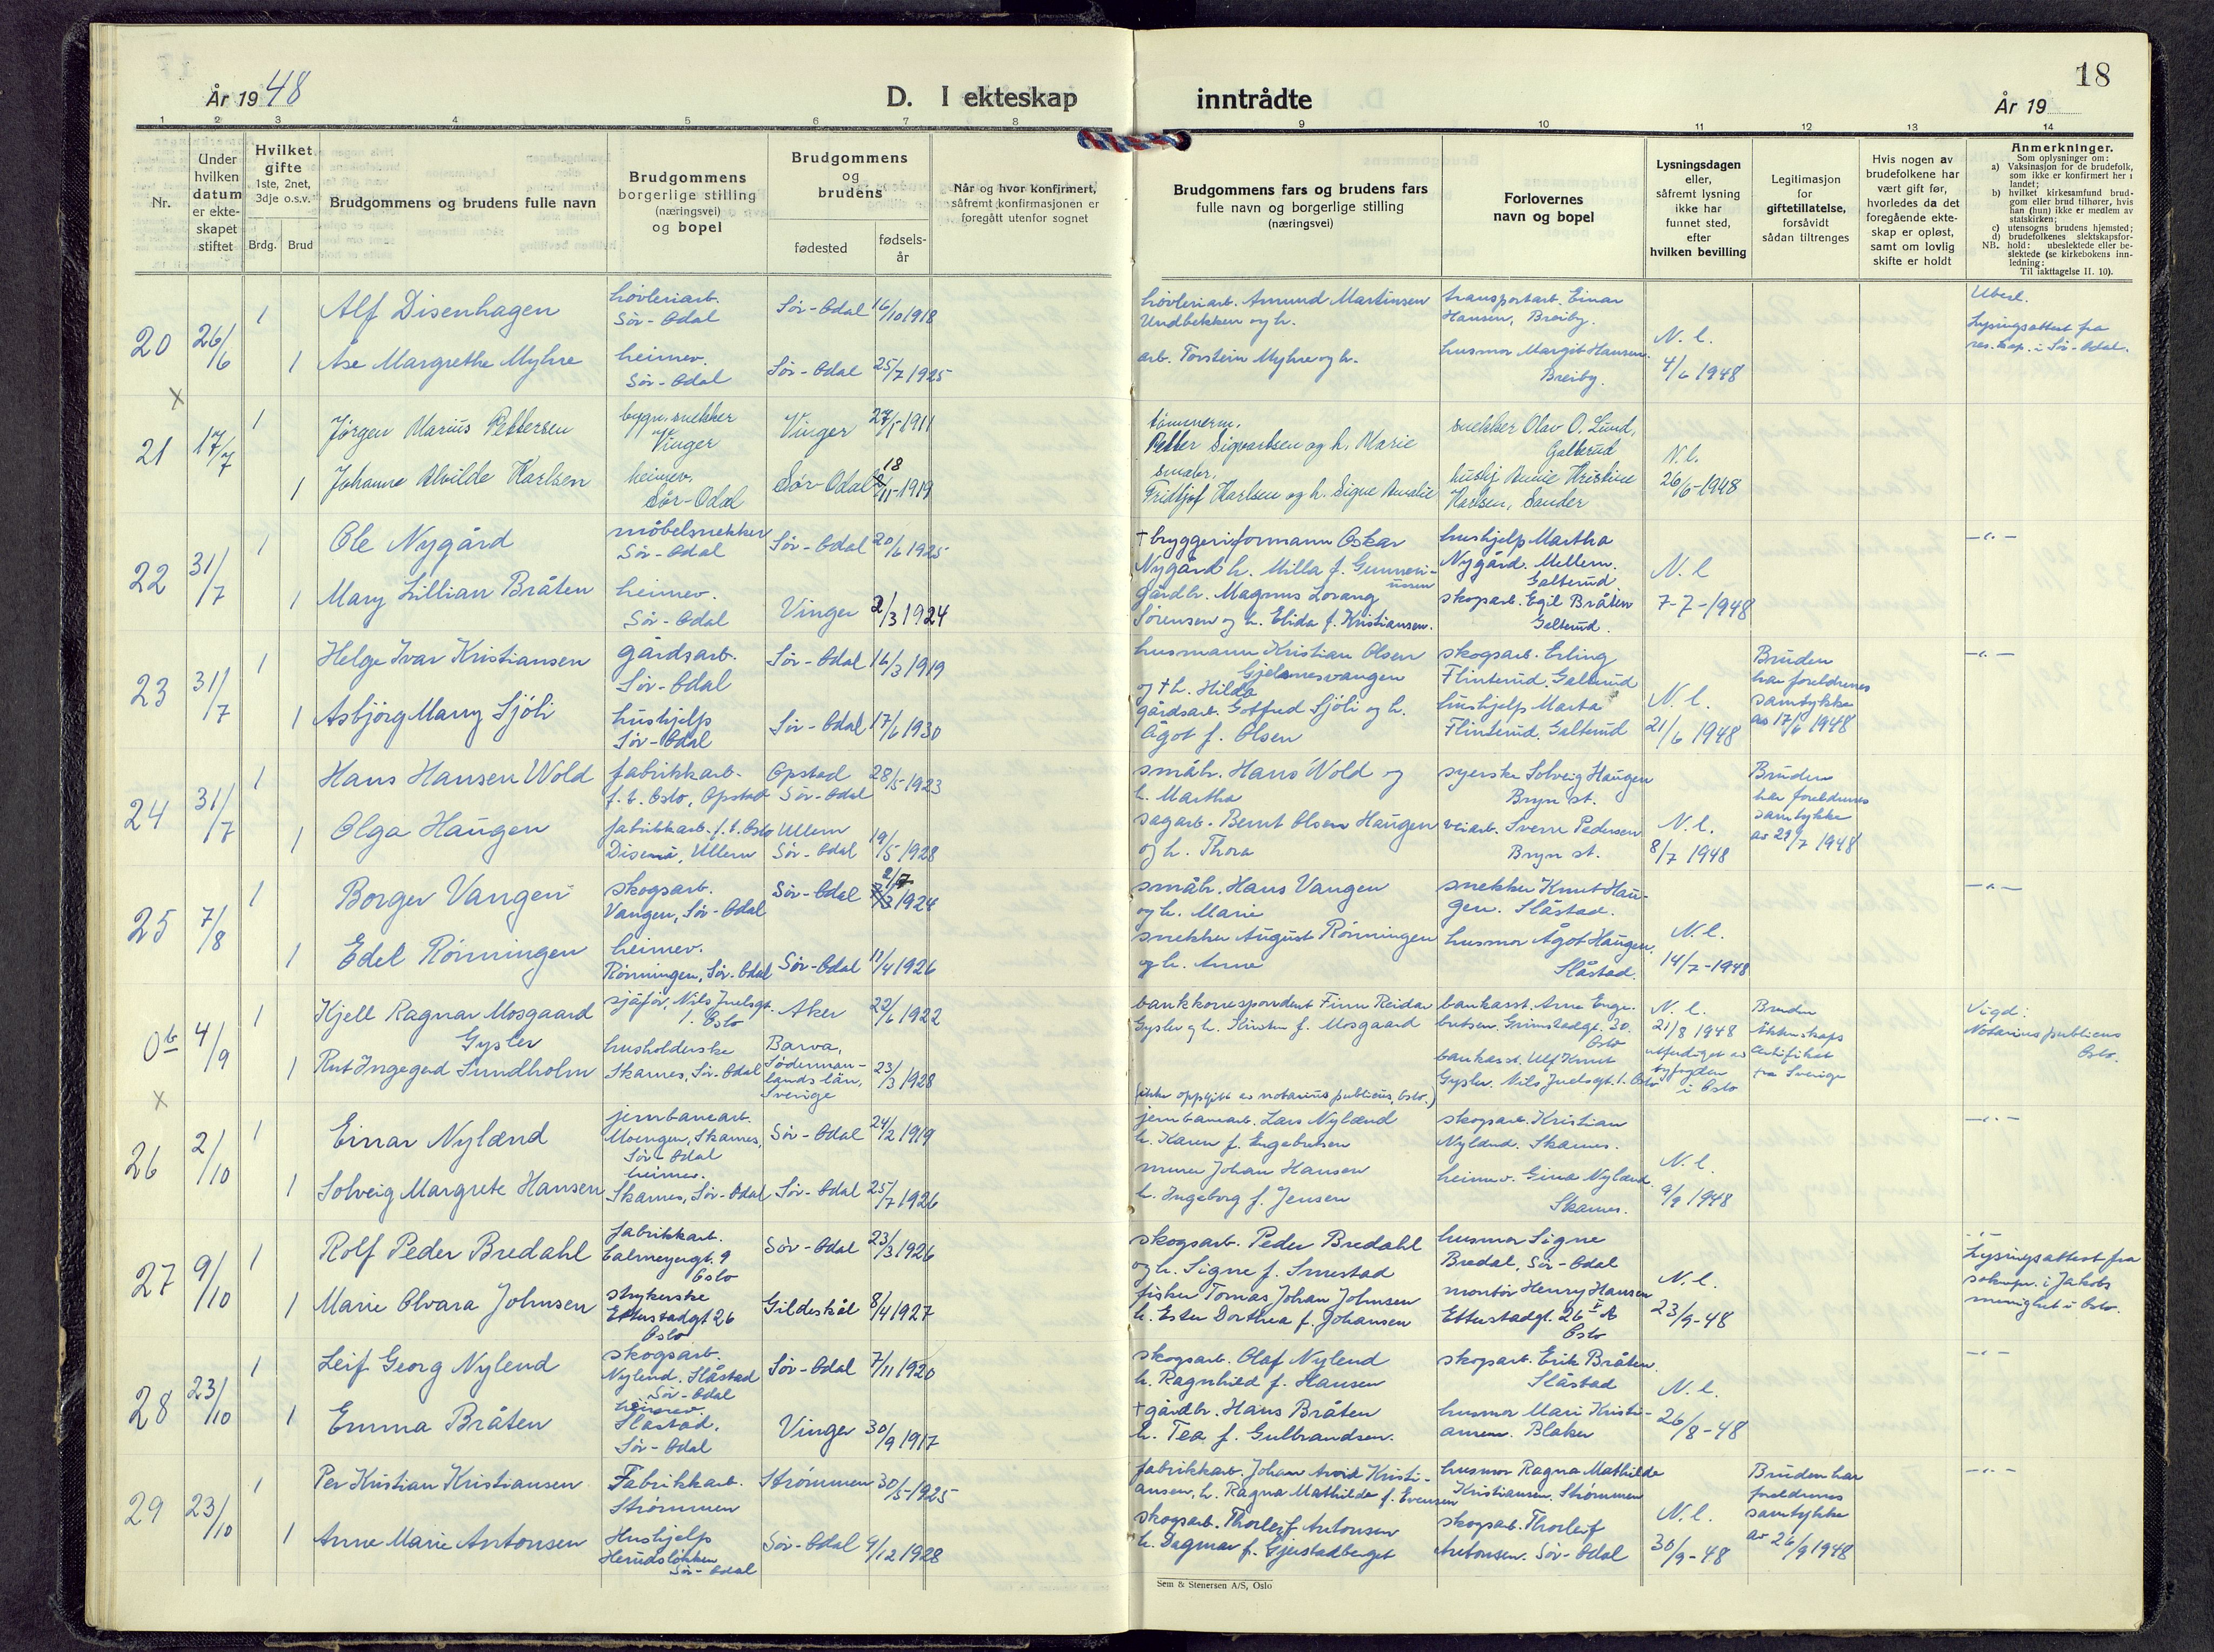 18
År 1948
D. I ekteskap inntrådte
År 19
1 2 3 4 5 6 7 8 9 10 11 12 13 14
Nr.
Under hvilken datum er ekteskapet stiftet
Hvilket gifte 1ste, 2net, 3dje o.s.v.
Brdg. Brud
Brudgommens og brudens fulle navn
Brudgommens borgerlige stilling (næringsvei) og bopel
Brudgommens og brudens
fødested
fødselsår
Når og hvor konfirmert, såfremt konfirmasjonen er foregått utenfor sognet
Brudgommens fars og brudens fars fulle navn og borgerlige stilling (næringsvei)
Forlovernes navn og bopel
Lysningsdagen eller, såfremt lysning ikke har funnet sted, efter hvilken bevilling
Legitimasjon for giftetillatelse, forsåvidt sådan tiltrenges
Hvis nogen av brudefolkene har vært gift før, hvorledes da det foregående ekteskap er opløst, samt om lovlig skifte er holdt
Anmerkninger.
Som oplysninger om:
a) Vaksinasjon for de brudefolk, som ikke er konfirmert her i landet;
b) hvilket kirkesamfund brudgom eller brud tilhører, hvis han (hun) ikke er medlem av statskirken;
c) utensogns brudens hjemsted;
d) brudefolkenes slektskapsforhold: ubeslektede eller beslektede (se kirkebokens innledning: Til iakttagelse II. 10).
NB.
20 26/6 1 Alf Disenhagen høvleriarb. Sør-Odal Sør-Odal 16/10 1918 høvleriarb. Amund Martinsen Undbekken og h. transportarb. Einar Hansen, Breiby. Ubesl.
1 Åse Margrethe Myhre heimev. Sør-Odal Sør-Odal 25/7 1925 arb. Torstein Myhre og h. husmor Margit Hansen. Breiby. N. l. 4/6 1948 Lysingsattest fra res. kap. i Sør-Odal.
x
21 17/7 1 Jørgen Marius Pettersen bygn.snekker Vinger Vinger 27/5-1911 tømmerm. Petter Sigvartsen og h. Marie snekker Olav O. Lund, Galterud
1 Johanne Alvilde Karlsen heimev. Sør-Odal Sør-Odal 18/11-1919 småbr. Fridtjof Karlsen og h. Signe Amalie hushj Annie Kristine Karlsen, Sander N.l. 26/6-1948
22 31/7 1 Ole Nygård møbelsnekker Sør-Odal Sør-Odal 20/6 1925 + bryggeriformann Oskar Nygård h. Milla f. Gunneriussen hushjelp Martha Nygård. Mellem. Galterud -"-
1 Mary Lillian Bråten heimev. Sør-Odal Vinger 2/3 1924 gårdbr. Magnus Lorang Sørensen og h. Elida f. Kristiansen. skogsarb. Egil Bråten Galterud. N. l 7-7-1948
23 31/7 1 Helge Ivar Kristiansen gårdsarb. Sør-Odal Sør-Odal 16/3 1919 husmann Kristian Olsen Gjelsnesvangen og + h. Hilda skogsarb. Erling Flinterud. Galterud Bruden har foreldrenes samtykke av 17/6 1948 -"-
1 Asbjörg Marry Sjöli hushjelp Sør-Odal Sør-Odal 17/6 1930 gårdsarb. Gotfred Sjöli og h. Ågot f. Olsen hushjelp Marta Flinterud. Galterud N. l. 21/6 1948
24 31/7 1 Hans Hansen Wold fabrikkarb. f. t. Oslo, Opstad Opstad Sør-Odal 28/5-1923 småbr. Hans Wold og h. Martha syerske Solveig Haugen Bryn st. Bruden har foreldrenes samtykke av 29/7 1948
1 Olga Haugen fabrikkarb. f. t. Oslo Disenå, Ullern Ullern Sør-Odal 19/5 1928 sagarb. Bernt Olsen Haugen og h. Thora veiarb. Sverre Pedersen Bryn st. N. l. 8/7 1948
25 7/8 1 Borger Vangen skogsarb. Vangen, Sør-Odal Sør-Odal 2/7 1924 småbr. Hans Vangen og h. Marie snekker Knut Haugen. Slåstad. -"-
1 Edel Rönningen heimev. Rönningen, Sør-Odal Sør-Odal 11/4 1926 snekker August Rönningen og h. Anna husmor Ågot Haugen. Slåstad. N. l. 14/7-1948
0b 4/9 1 Kjell Ragnar Mosgaard Gysler sjåför, Nils Juelsgt. 1. Oslo Aker 22/6 1922 bankkorrespondent Finn Reidar Gysler og h. Kirsten f. Mosgaard bankasst. Arne Engebretsen. Grimstadgt. 30. Oslo N. l. 21/8 1948 utferdiget av byfogden i Oslo Bruden äktenskapscertifikat fra Sverige Vigd: Notarius publicus Oslo.
1 Rut Ingegerd Sundholm husholderske Skarnes, Sør-Odal Barva, Södermanlands län, Sverige 23/3 1928 (ikke oppgitt av notarius publicus, Oslo.) bankasst. Ulf Knut Gysler. Nils Juelsgt. 1. Oslo
x
26 2/10 1 Einar Nylænd jernbanearb. Moengen, Skarnes, Sør-Odal Sør-Odal 24/2 1919 jernbanearb. Lars Nylænd h. Karen f. Engebretsen skogsarb. Kristian Nylænd. Skarnes. -"-
1 Solveig Margrete Hansen heimev. Skarnes, Sør-Odal Sør-Odal 25/7 1926 murer Johan Hansen h. Ingeborg f. Jensen heimev. Gina Nylænd. Skarnes. N. l. 9/9 1948
27 9/10 1 Rolf Peder Bredahl fabrikkarb. Calmeyergt. 9 Oslo Sør-Odal 23/3 1926 skogsarb. Peder Bredahl og h. Signe f. Smestad husmor Signe Bredal, Sør-Odal -"- Lysningsattest fra soknepr. i Jakobs menighet i Oslo.
1 Marie Olvara Johnsen strykerske Etterstadgt 26 Oslo Gildeskål 8/4 1927 fisker Tomas Johan Johnsen h. Ester Dorthea f. Johansen montör Henry Hansen Etterstadgt. 26 A Oslo N. l. 23/9-48
28 23/10 1 Leif Georg Nylend skogsarb. Nylend. Slåstad Sør-Odal Sør-Odal 7/11 1920 skogsarb. Olaf Nylend h. Ragnhild f. Hansen skogsarb. Erik Bråten. Slåstad -"-
1 Emma Bråten heimev. Slåstad, Sør-Odal Vinger 30/9 1917 + gårdbr. Hans Bråten h. Tea f. Gulbrandsen. husmor Mari Kristiansen. Blaker N. l. 26/8-48
29 23/10 1 Per Kristian Kristiansen Fabrikkarb. Strömmen Strömmen 30/5-1925 fabrikkarb. Johan Arvid Kristiansen, h. Ragna Mathilde f. Evensen husmor Ragna Mathilde Kristiansen. Strömmen Bruden har foreldrenes samtykke av 26/9 1948 -"-
1 Anne Marie Antonsen Hushjelp Herudsløkken Sør-Odal Sør-Odal 9/12 1928 skogsarb. Thorleif Antonsen h. Dagmar f. Gjerstadberget skogsarb. Thorleif Antonsen. Sør-Odal N. l. 30/9-48
Sem & Stenersen A/S, Oslo